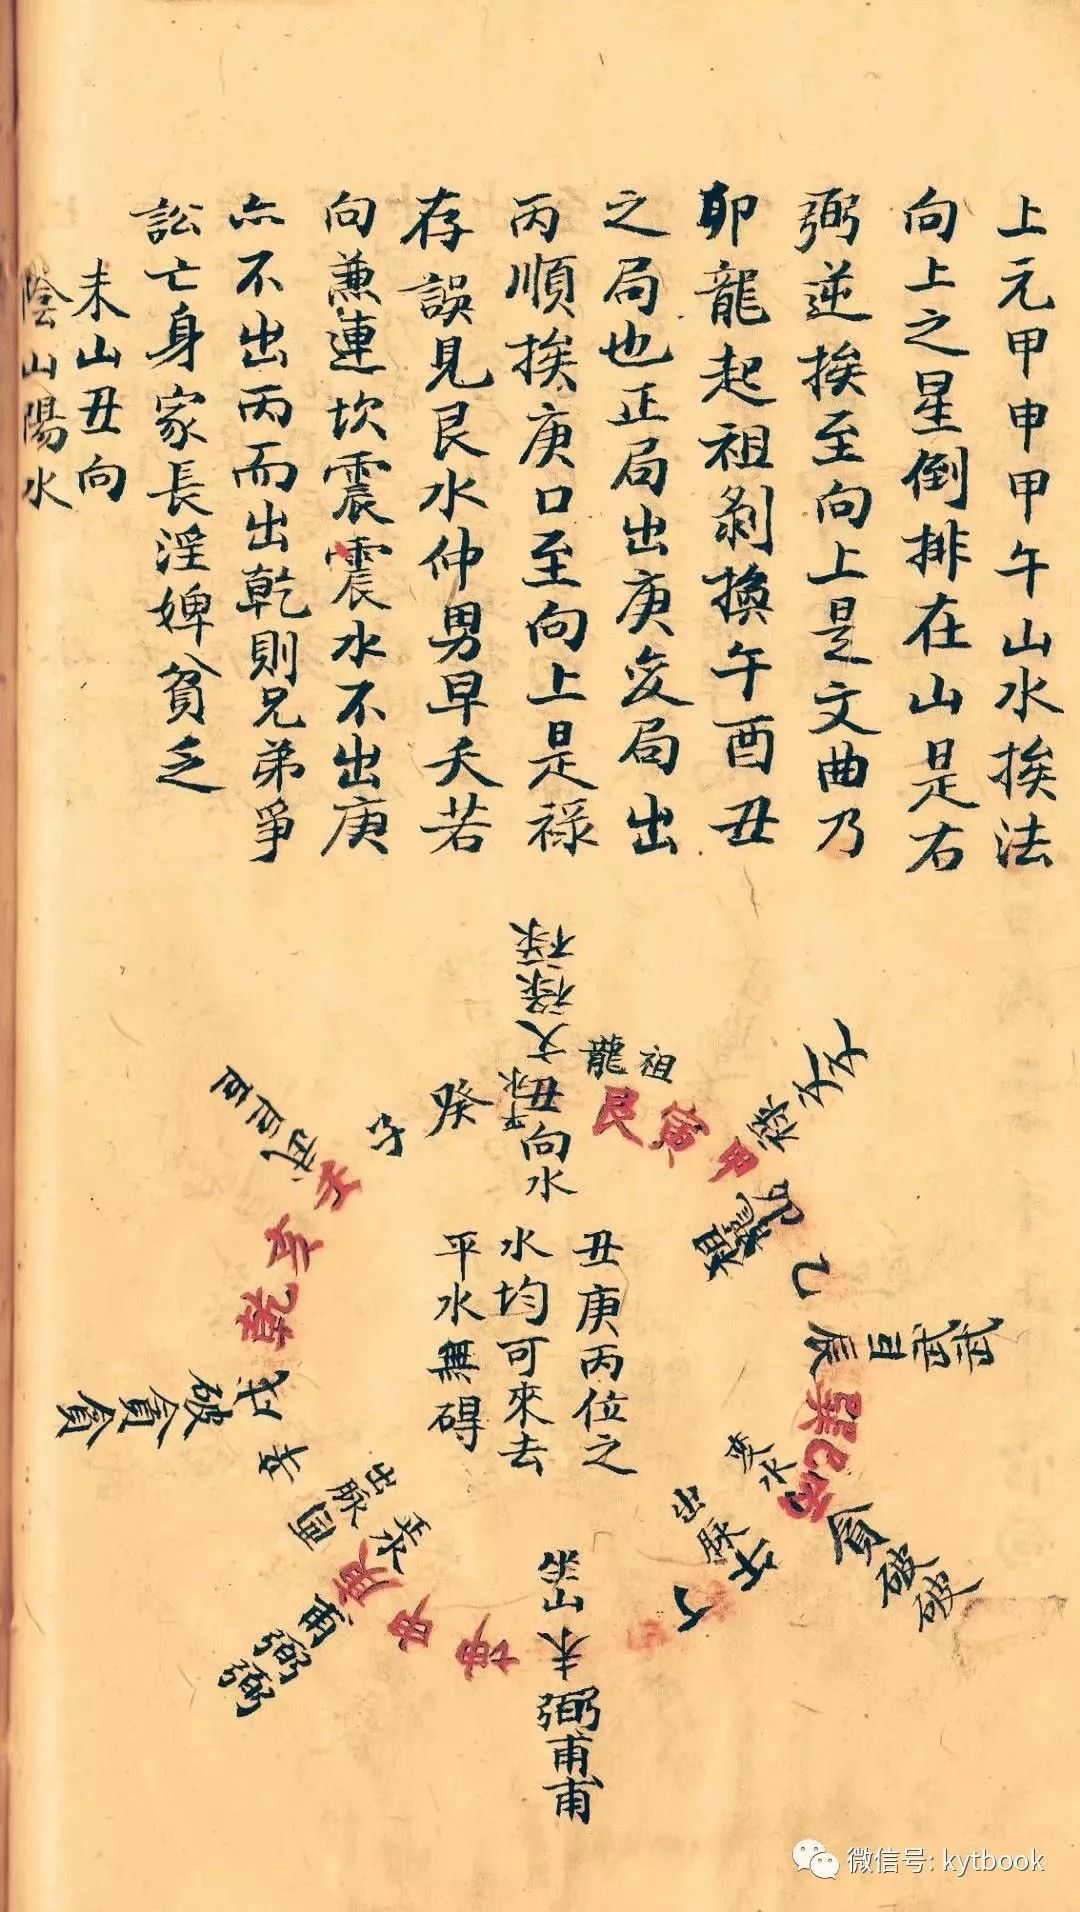 上元甲申甲午山水挨法
向上之星倒排在山是右
弼逆挨至向上是文曲乃
卯龍起祖剝換午酉丑
之局也正局出庚变局出
丙順挨庚口至向上是祿
存誤見艮水仲男早夭若
向兼連坎震震水不出庚
亦不出丙而出乾則兄弟爭
訟亡身家長淫婢貧乏
未山丑向
陰山陽水
祿祿文丑向水
平水
祖龍
艮寅甲
祿文文
卯
祖龍
乙
辰巨武武
巽巳丙
貪破破
來水
午
出脉
丁
坐山未弼甫甫
坤申庚
甫弼弼
來水
出脉
酉
辛
戌破貪貪
乾亥壬
武巨巨
子癸
丑庚丙位之
水均可來去
平水無碍
微信号: kytbook